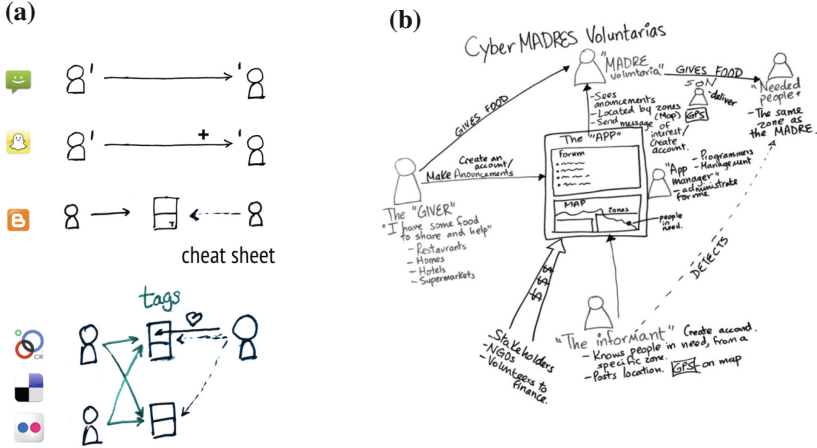 (a)
cheat sheet
tags
(b)
Cyber MADRES Voluntarias
"MADRE
voluntaria"
GIVES FOOD
SON
deliver
GPS
"Needed
people"
- The same
zone as
the MADRE.
- Sees
anouncements
- Located by zones
(Map)
- Send
message
of
interest/
Create
account.
GIVES FOOD
The "APP"
Forum
MAP
zones
people
in
need.
"App
manager"
- Programmers
- Management
- administrate
forums.
Create an
account/
Make Anouncements
The "GIVER"
"I have some food
to share and help"
- Restaurants
- Homes
- Hotels
- Supermarkets
DETECTS
$
$
$
- Stakeholders
- NGOs
- Volunteers to
finance.
"The informant"
Create account.
- Knows people in need, from a
specific zone.
- Posts location. GPS on map